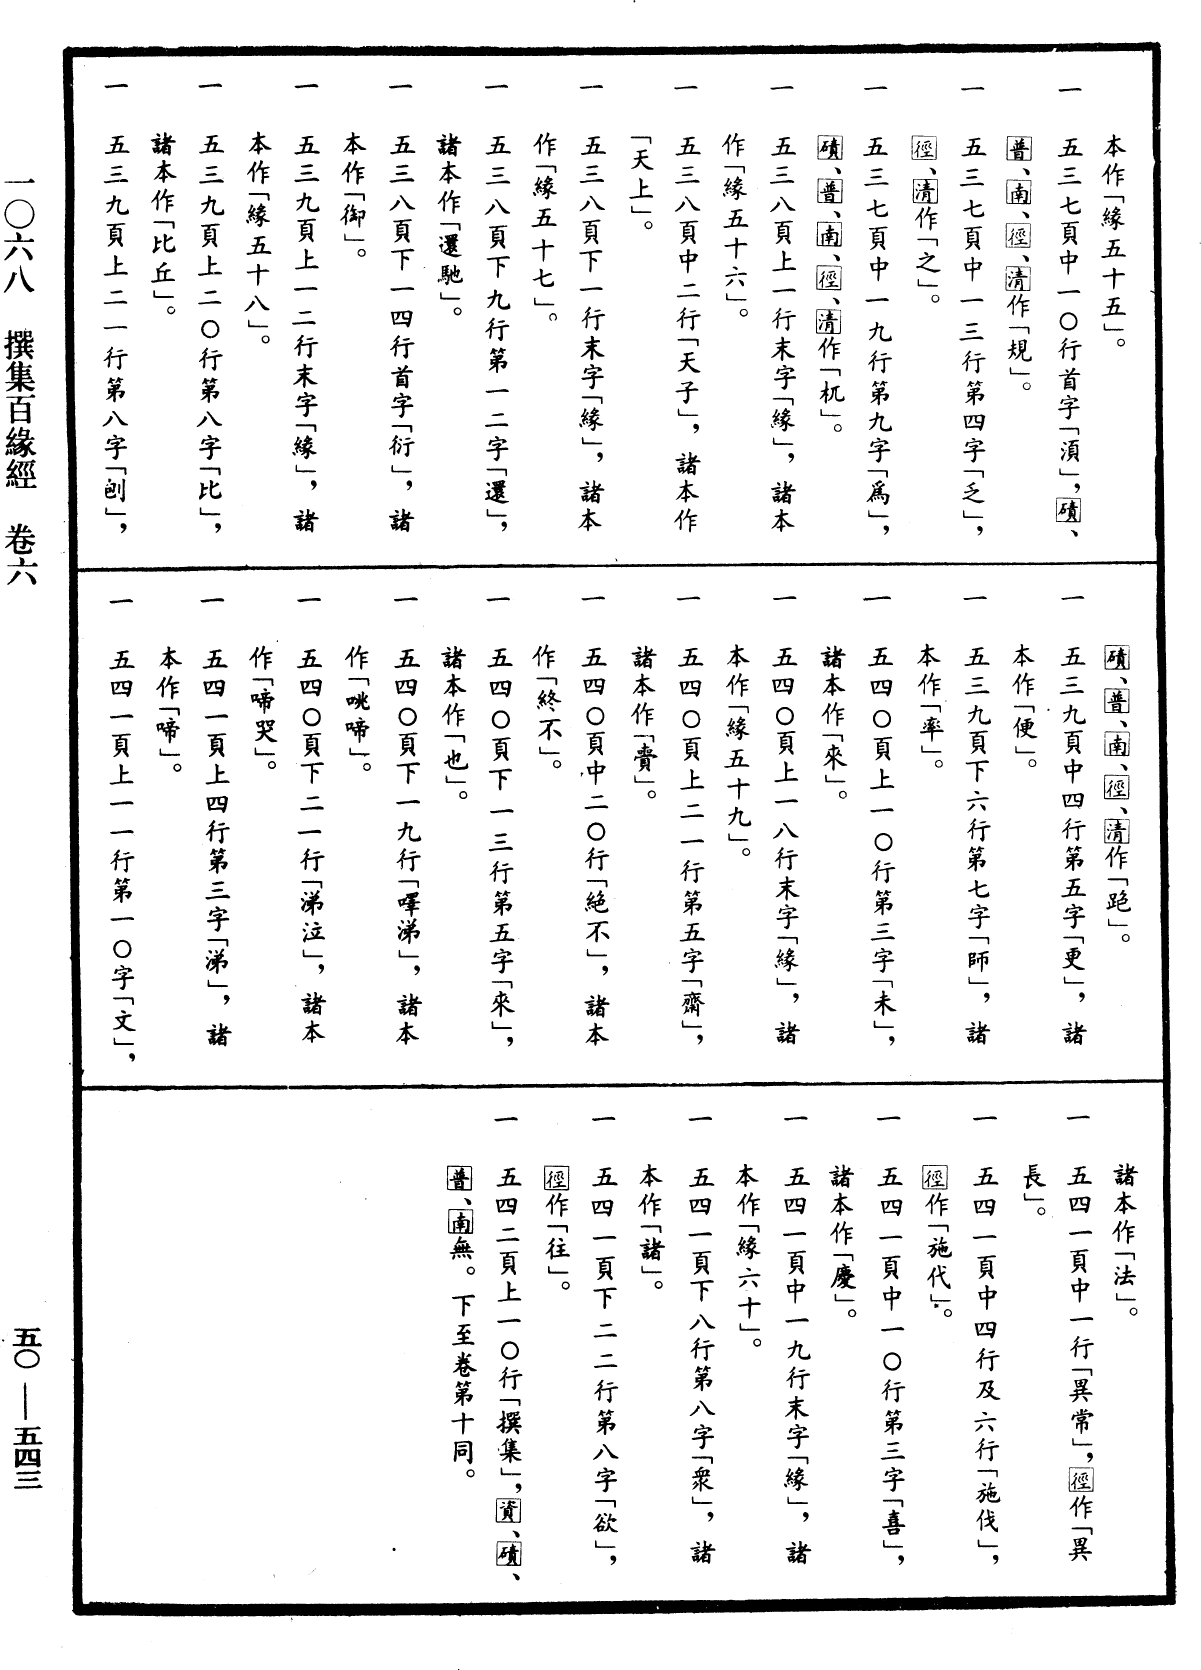 本作「緣五十五」。
一 五三七頁中一〇行首字「湏」，磧、
普、南、徑、清作「規」。
一 五三七頁中一三行第四字「乏」，
徑、清作「之」。
一 五三七頁中一九行第九字「爲」，
磧、普、南、徑、清作「杌」。
一 五三八頁上一行末字「緣」，諸本
作「緣五十六」。
一 五三八頁中二行「天子」，諸本作
「天上」。
一 五三八頁下一行末字「緣」，諸本
作「緣五十七」。
一 五三八頁下九行第一二字「還」，
諸本作「還馳」。
一 五三八頁下一四行首字「衍」，諸
本作「御」。
一 五三九頁上一二行末字「緣」，諸
本作「緣五十八」。
一 五三九頁上二〇行第八字「比」，
諸本作「比丘」。
一 五三九頁上二一行第八字「刨」，
磧、普、南、徑、清作「跑」。
一 五三九頁中四行第五字「更」，諸
本作「便」。
一 五三九頁下六行第七字「師」，諸
本作「率」。
一 五四〇頁上一〇行第三字「未」，
諸本作「來」。
一 五四〇頁上一八行末字「緣」，諸
本作「緣五十九」。
一 五四〇頁上二一行第五字「齋」，
諸本作「賷」。
一 五四〇頁中二〇行「絕不」，諸本
作「終不」。
一 五四〇頁下一三行第五字「來」，
諸本作「也」。
一 五四〇頁下一九行「嘷涕」，諸本
作「咷啼」。
一 五四〇頁下二一行「涕泣」，諸本
作「啼哭」。
一 五四一頁上四行第三字「涕」，諸
本作「啼」。
一 五四一頁上一一行第一〇字「文」，
諸本作「法」。
一 五四一頁中一行「異常」，徑作「異
長」。
一 五四一頁中四行及六行「施伐」，
徑作「施代」。
一 五四一頁中一〇行第三字「喜」，
諸本作「慶」。
一 五四一頁中一九行末字「緣」，諸
本作「緣六十」。
一 五四一頁下八行第八字「衆」，諸
本作「諸」。
一 五四一頁下二二行第八字「欲」，
徑作「往」。
一 五四二頁上一〇行「撰集」，資、磧、
普、南無。下至卷第十同。
一〇六八 撰集百緣經 卷六
五〇—五四三